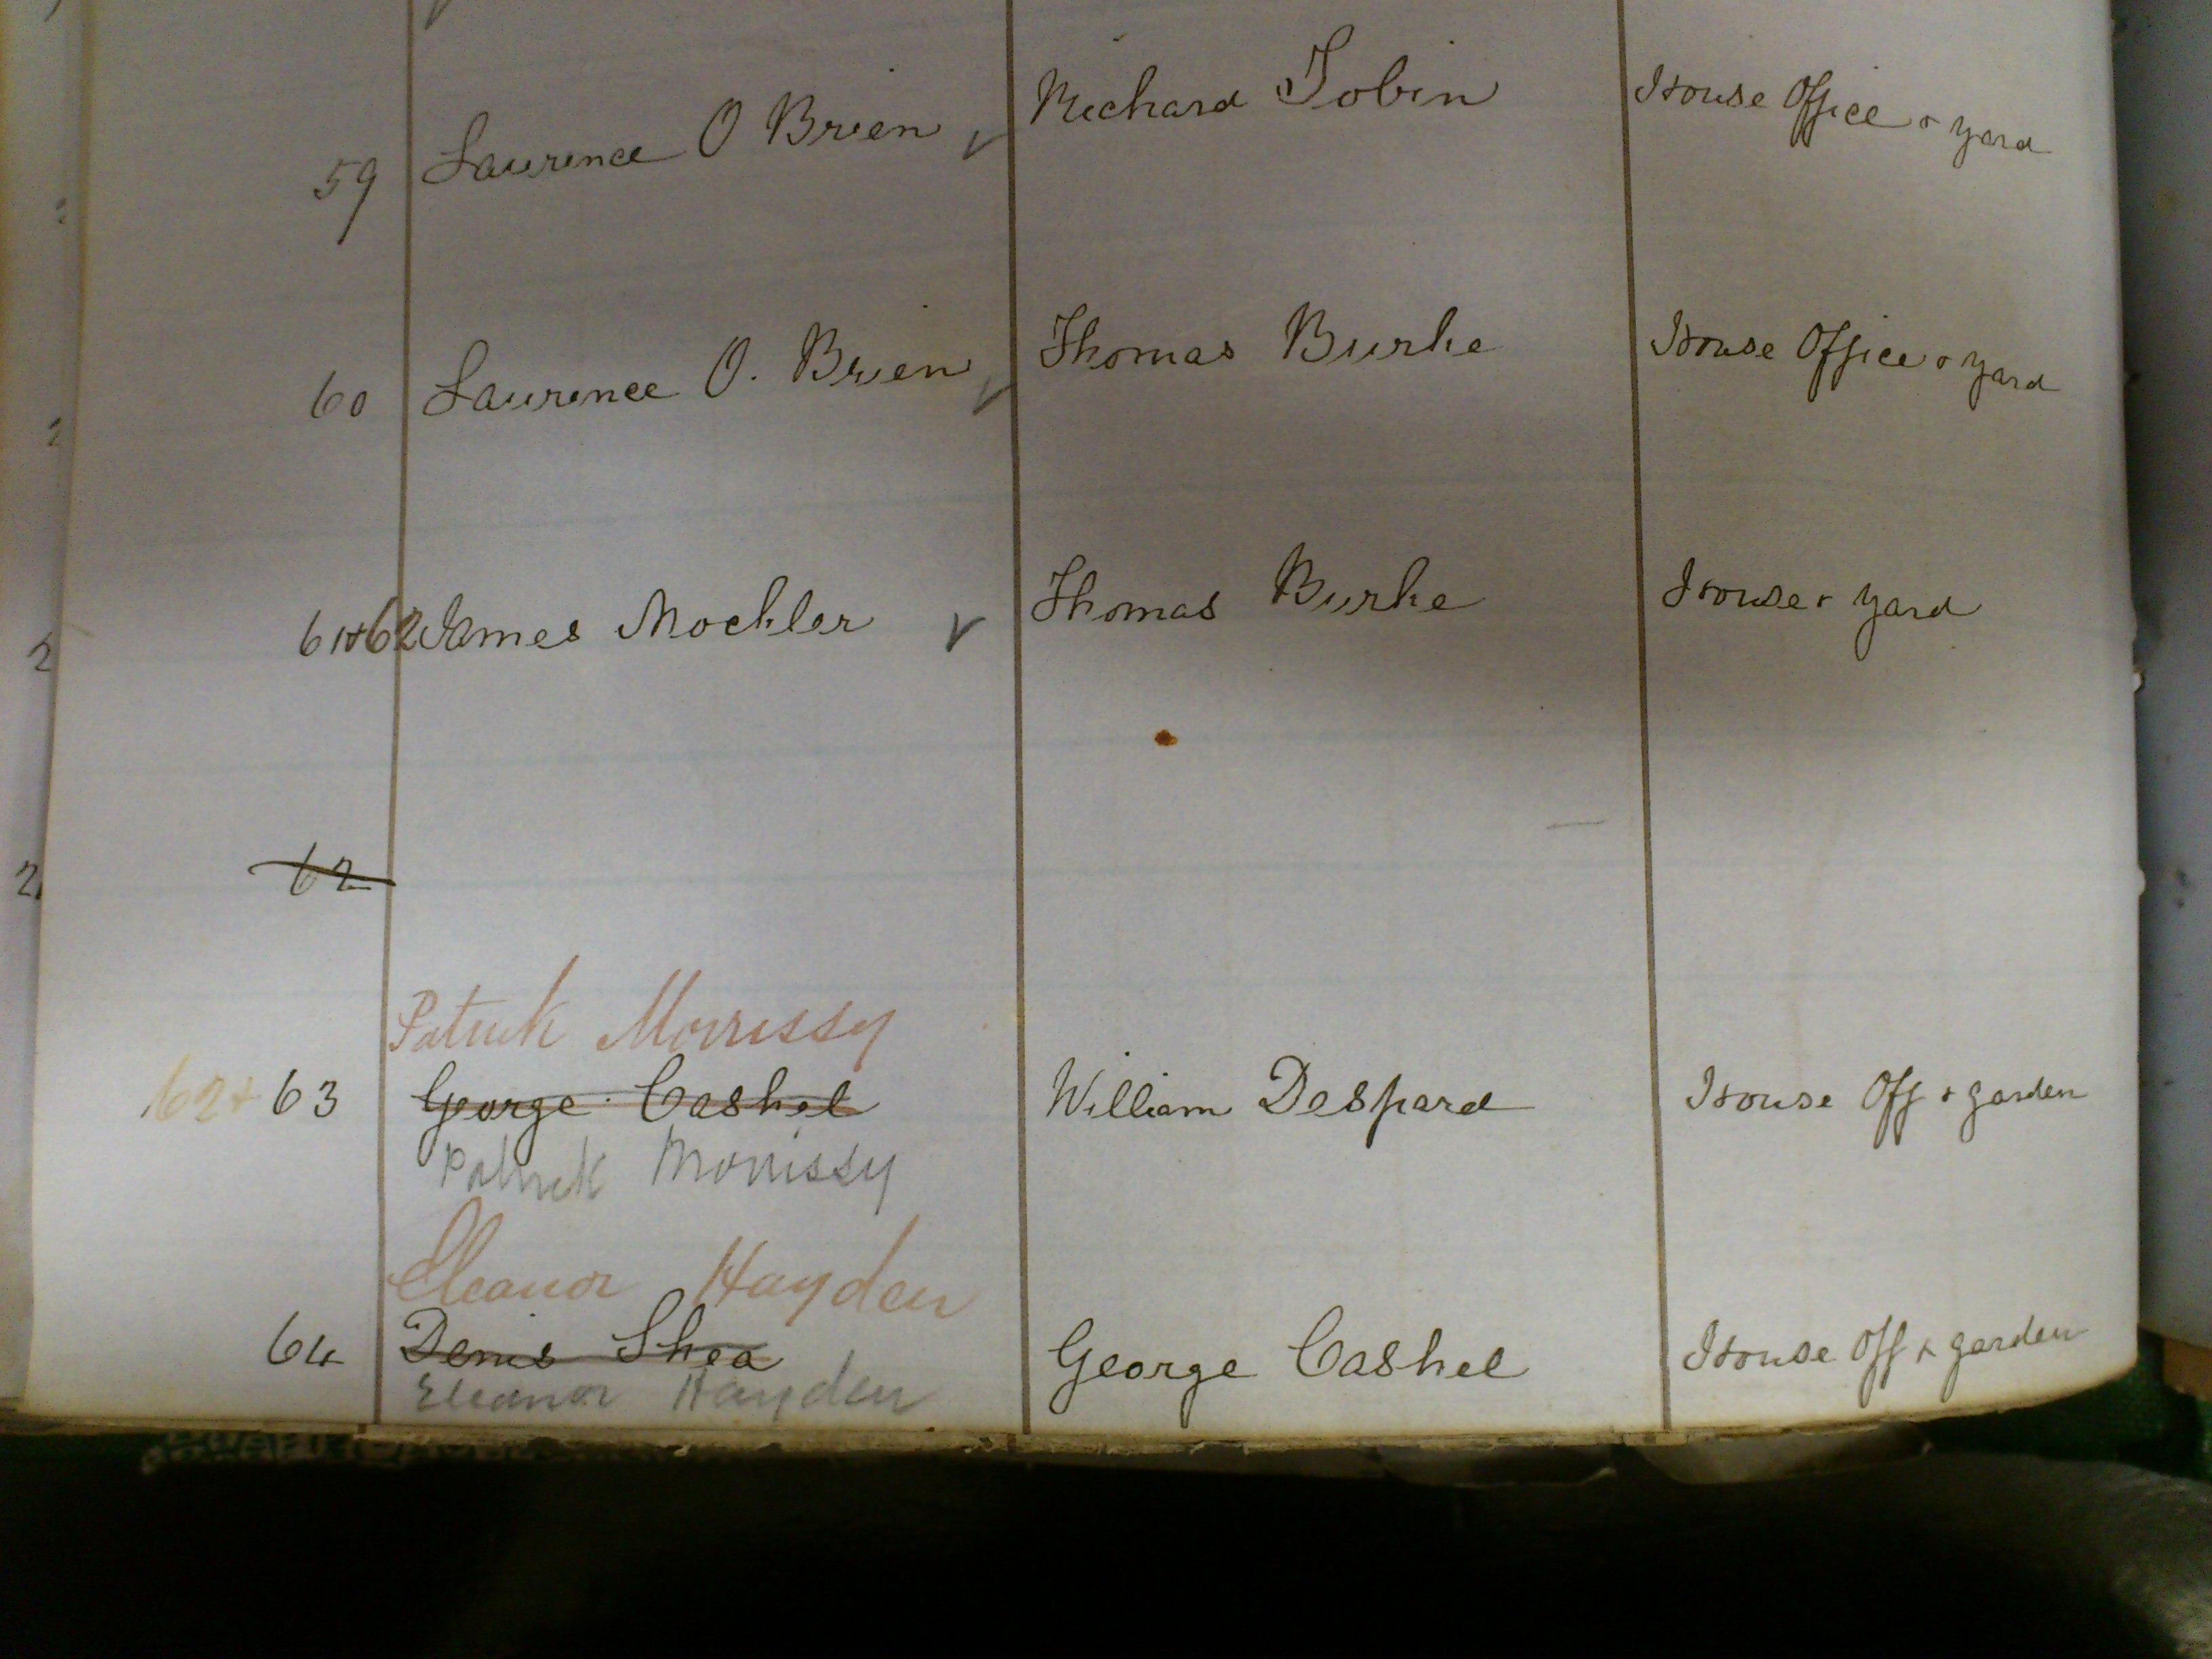 59 Laurence O Brien ✓ Richard Tobin House Office & yard
60 Laurence O. Brien ✓ Thomas Burke House Office & yard
61&62 James Mockler ✓ Thomas Burke House & yard
62
Patrick Morrissy
62+ 63 George Cashel William Despard House Off & garden
Patrick Morrissy
Eleanor Hayden
64 Denis Shea George Cashel House Off & garden
Eleanor Hayden